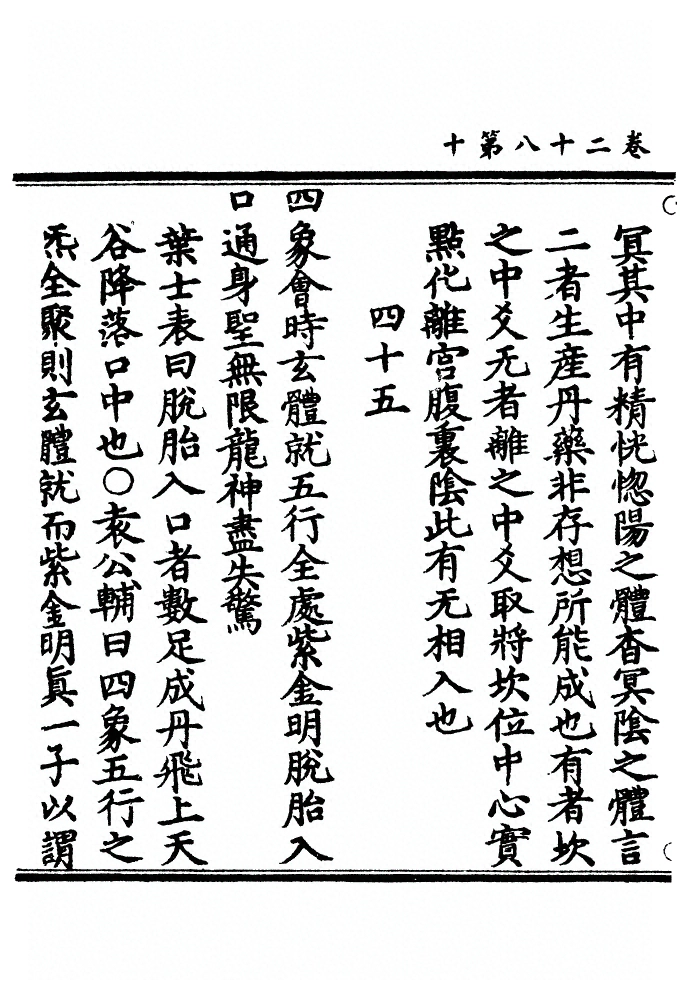 卷二十八第十
冥其中有精恍惚陽之體杳冥陰之體言
二者生產丹藥非存想所能成也有者坎
之中爻无者離之中爻取將坎位中心實
點化離宮腹裏陰此有无相入也
四十五
四象會時玄體就五行全處紫金明脫胎入
口通身聖無限龍神盡失驚
葉士表曰脫胎入口者數足成丹飛上天
谷降落口中也○袁公輔曰四象五行之
炁全聚則玄體就而紫金明眞一子以謂